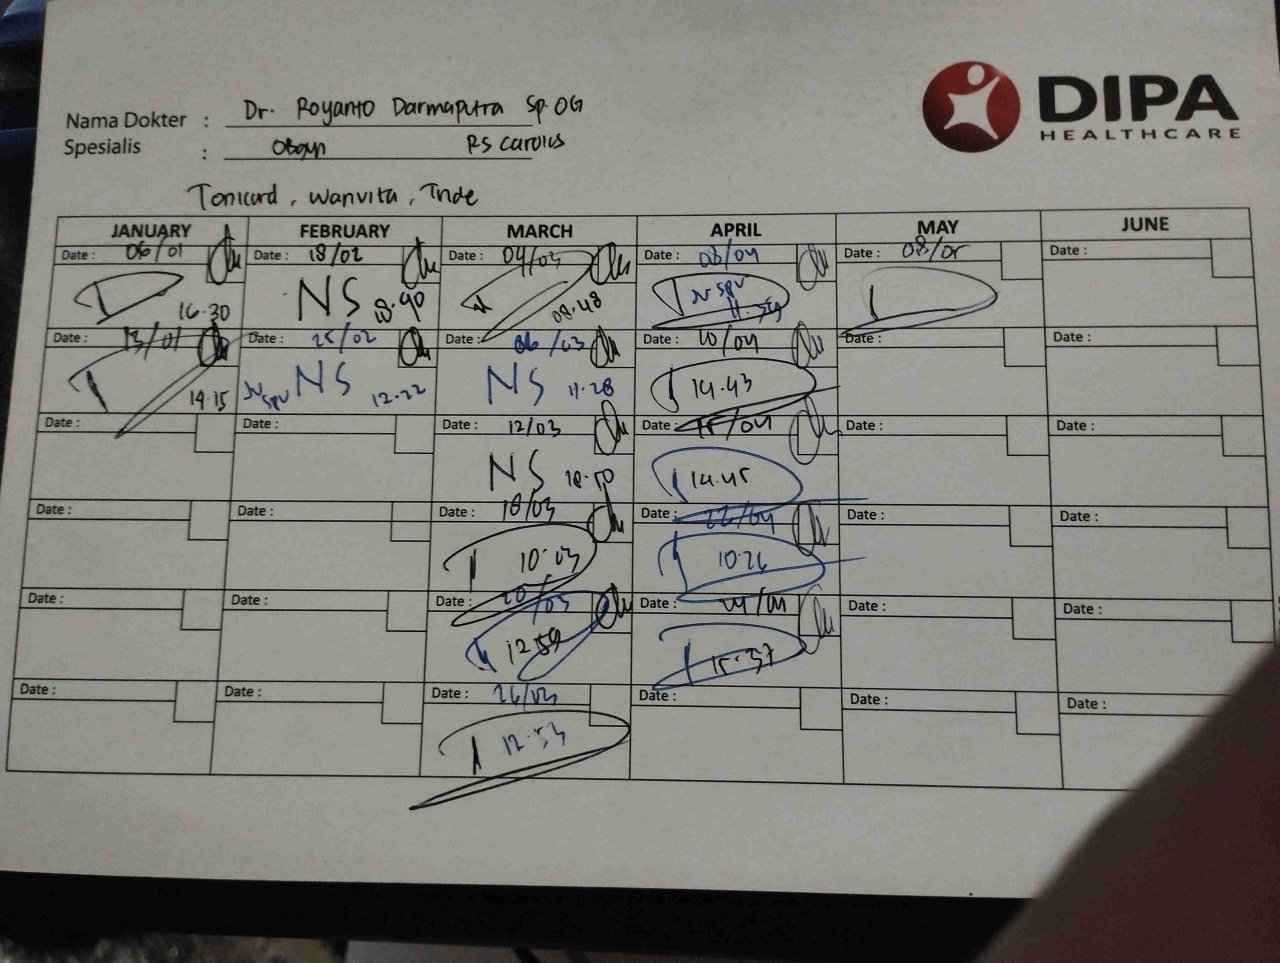 DIPA
HEALTHCARE
Nama Dokter : Dr. Royanto Darmaputra Sp.OG
Spesialis : Obgyn RS Carolus
Tonicard, Wanvita, Tride
JANUARY FEBRUARY MARCH APRIL MAY JUNE
Date : 06/01 Date : 18/02 Date : 04/03 Date : 03/04 Date : 08/05 Date :
16.30 NS 18.40 08.48 SPV 11.59
Date : 13/01 Date : 25/02 Date : 06/03 Date : 10/04 Date : Date :
14.15 SPV NS 12.22 NS 11.28 14.43
Date : Date : Date : 12/03 Date : 15/04 Date : Date :
NS 18.50 14.45
Date : Date : Date : 18/03 Date : 22/04 Date : Date :
10.03 10.26
Date : Date : Date : 20/03 Date : Date : Date :
12.59 15.37
Date : Date : Date : 26/03 Date : Date : Date :
12.53